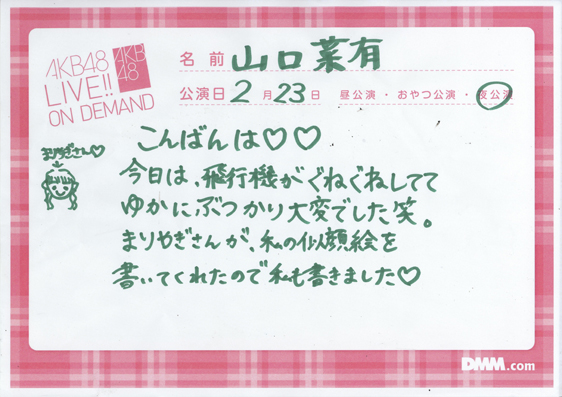 AKB48
LIVE!!
ON DEMAND
AKB
48
名前 山口菜有
公演日 2月23日 昼公演・おやつ公演・夜公演
こんばんは♡♡
まりやぎさん♡
今日は、飛行機がぐねぐねしてて
ゆかにぶつかり大変でした笑。
まりやぎさんが、私の似顔絵を
書いてくれたので私も書きました♡
DMM.com